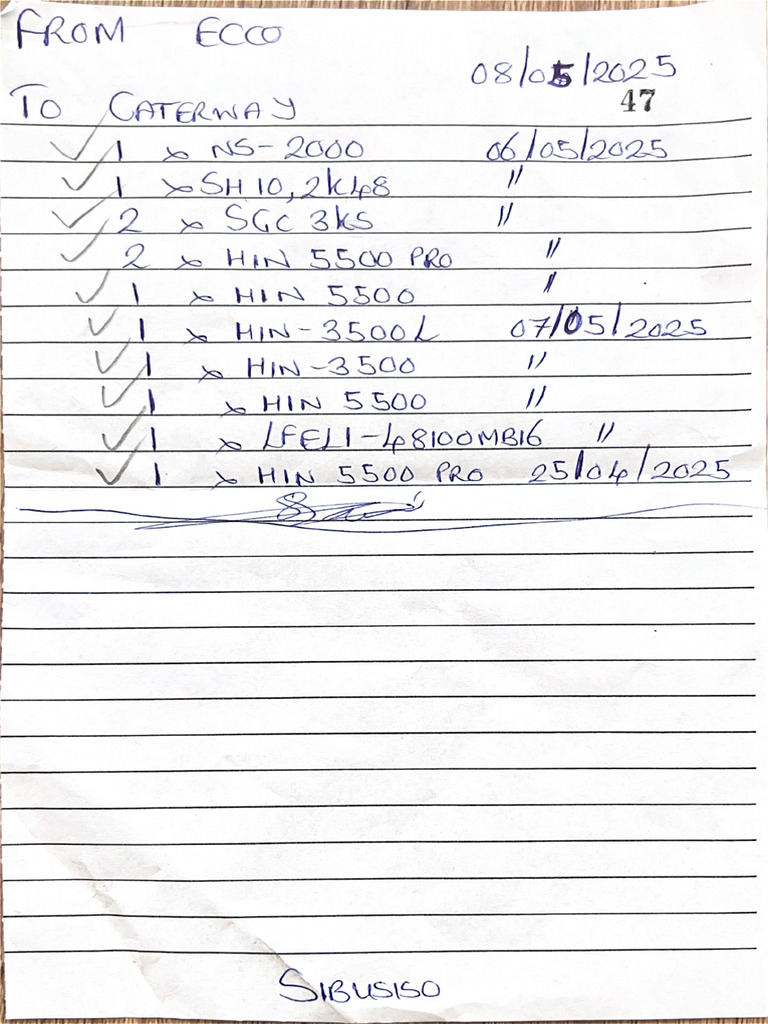 FROM ECCO
08/05/2025
47
TO CATERWAY
✓ 1 x NS-2000 06/05/2025
✓ 1 x SH10,2K48 〃
✓ 2 x SGC 3KS 〃
✓ 2 x HIN 5500 PRO 〃
✓ 1 x HIN 5500 〃
✓ 1 x HIN-3500L 07/05/2025
✓ 1 x HIN-3500 〃
✓ 1 x HIN 5500 〃
✓ 1 x LFELI-48100MB16 〃
✓ 1 x HIN 5500 PRO 25/04/2025
SIBUSISO